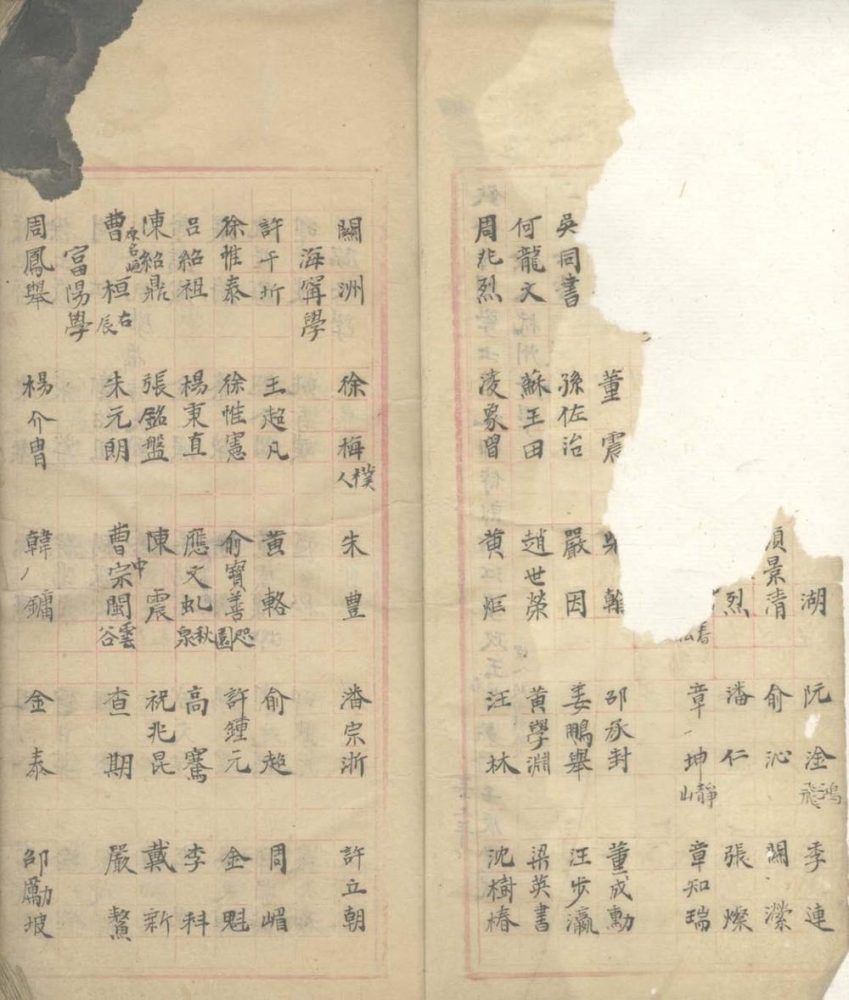 湖 阮淦 鴻飛 李連
景清 俞沁 關濚
烈 潘仁 張燦
春 章坤 靜山 章知瑞
董震 邵承封 董成勳
吳同書 孫佐治 嚴因 姜鵬舉 汪步瀛
何龍文 蘇王田 趙世榮 黃學淵 梁英書
周兆烈 凌象曾 黃烜 汪林 沈樹椿
關洲 徐梅 樸人 朱豊 潘宗浙 許立朝
海寧學
許干圻 王超凡 黃輅 俞超 周嵋
徐惟泰 徐惟憲 俞寶善 咫園 許鍾元 金魁
呂紹祖 楊秉直 應文虬 秋泉 高騫 李科
陳紹鼎 張銘盤 陳震 祝兆昆 戴新
曹桓 原名 右辰 朱元朗 曹宗閩 中 雲谷 查期 嚴鰲
富陽學
周鳳舉 楊介胄 韓鏞 金泰 邵勵坡